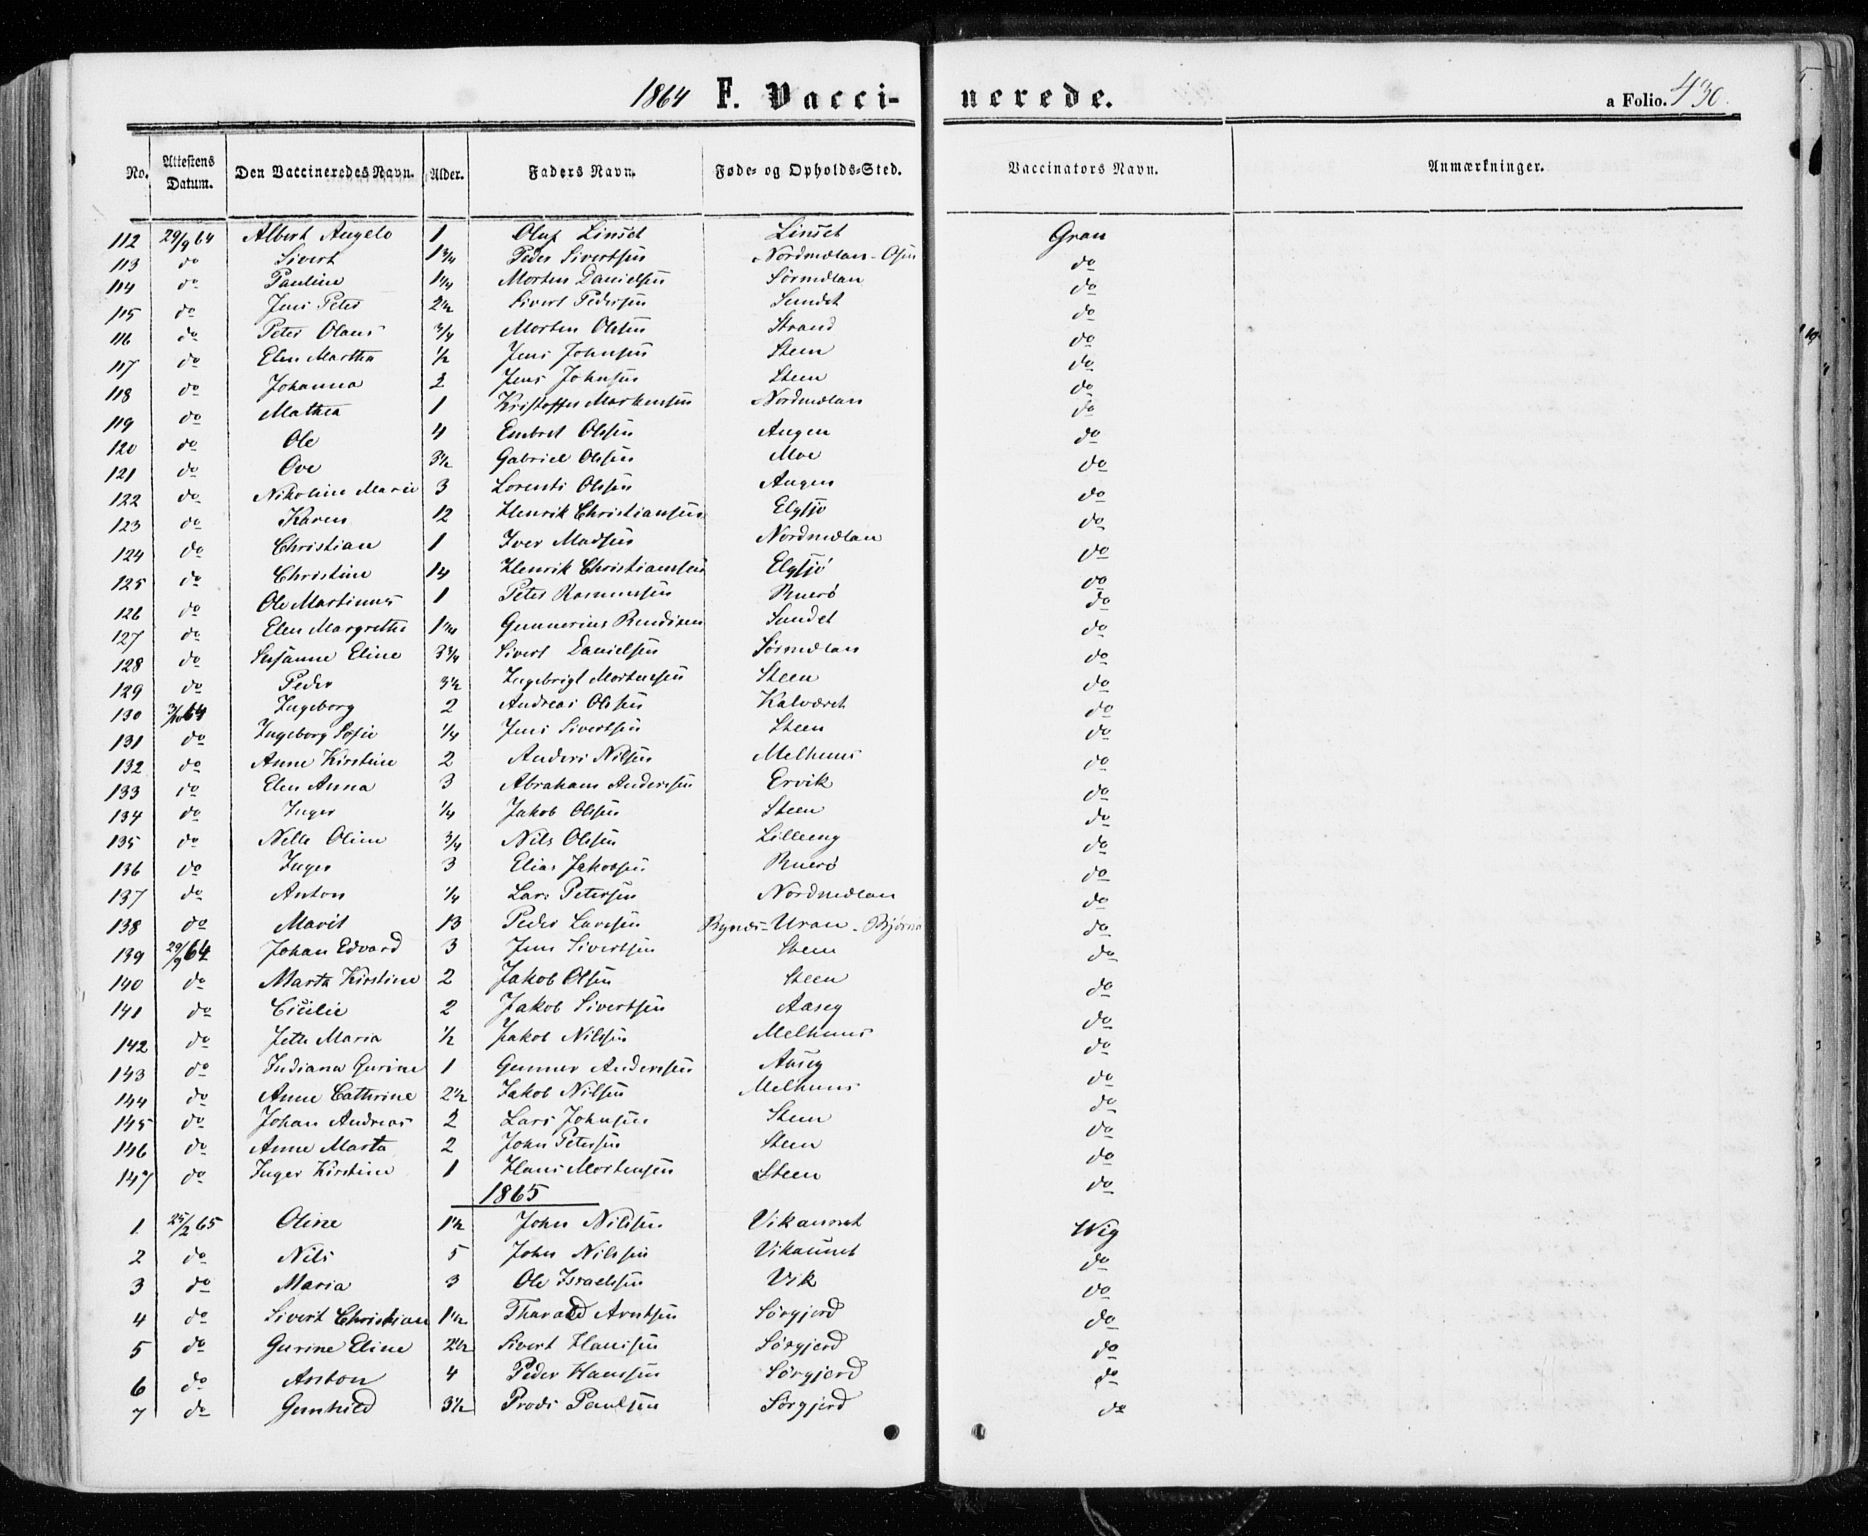 1864 F. Vacci- nerede. a Folio. 430.
No. Attestens Datum. Den Vaccineredes Navn. Alder. Faders Navn. Føde- og Opholds-Sted. Vaccinators Navn. Anmærkninger.
112 29/9 64 Albert Angelo 1 Oluf Linset Linset Gran
113 do Sivert 1 3/4 Peder Sivertsen Nordmelan - Osen do
114 do Pauline 1 1/4 Morten Danielsen Sørmelan do
115 do Jens Peter 2 1/2 Sivert Pedersen Sundet do
116 do Peter Olaus 3/4 Morten Olsen Strand do
117 do Elen Martha 1/2 Jens Johnsen Steen do
118 do Johanna 2 Jens Johnsen Steen do
119 do Mathea 1 Kristoffer Mortensen Nordmelan do
120 do Ole 4 Embret Olsen Augen do
121 do Ove 3 1/2 Gabriel Olsen Moe do
122 do Nikoline Marie 3 Lorents Olsen Augen do
123 do Karen 12 Henrik Christiansen Elgsjø do
124 do Christian 1 Iver Madsen Nordmelan do
125 do Christine 14 Henrik Christiansen Elgsjø do
126 do Ole Martinus 1 Peter Rasmussen Ruerø do
127 do Elen Margrethe 1 3/4 Gunnerius Sundet do
128 do Susanne Eline 3 3/4 Sivert Danielsen Sørmelan do
129 do Peder 3 1/2 Ingebrigt Mortensen Steen do
130 3/10 64 Ingeborg 2 Andreas Olsen Kalværet do
131 do Ingeborg Sofie 1/4 Jens Sivertsen Steen do
132 do Anne Kirstine 2 Anders Nilsen Melhuus do
133 do Elen Anna 3 Abraham Andersen Ervik do
134 do Inger 1/4 Jakob Olsen Steen do
135 do Nelle Oline 3/4 Nils Olsen Lilleeng do
136 do Inger 3 Elias Jakobsen Ruerø do
137 do Anton 1/4 Lars Petersen Nordmelan do
138 do Marit 13 Peder Larssen Bynes-Uran - Bjørnør do
139 29/9 64 Johan Edvard 3 Jens Sivertsen Steen do
140 do Marta Kirstine 2 Jakob Olsen Steen do
141 do Cicilie 2 Jakob Sivertsen Aaseg do
142 do Jette Maria 1/2 Jakob Nilsen Melhuus do
143 do Indiana Gurine 1 Gunner Andersen Aaseg do
144 do Anne Cathrine 2 1/2 Jakob Nilsen Melhuus do
145 do Johan Andreas 2 Lars Johnsen Steen do
146 do Anne Marta 2 John Petersen Steen do
147 do Inger Kirstine 1 Hans Mortensen Steen do
1865
1 25/2 65 Oline 1 1/2 John Nilssen Vikanset Wig
2 do Nils 5 John Nilssen Vikanset do
3 do Maria 3 Ole Israelsen Vik do
4 do Sivert Christian 1 1/2 Tharald Arntsen Sørgjerd do
5 do Gurine Eline 2 1/2 Sivert Hansen Sørgjerd do
6 do Anton 4 Peder Hansen Sørgjerd do
7 do Gunhild 3 1/2 Prods Paulsen Sørgjerd do